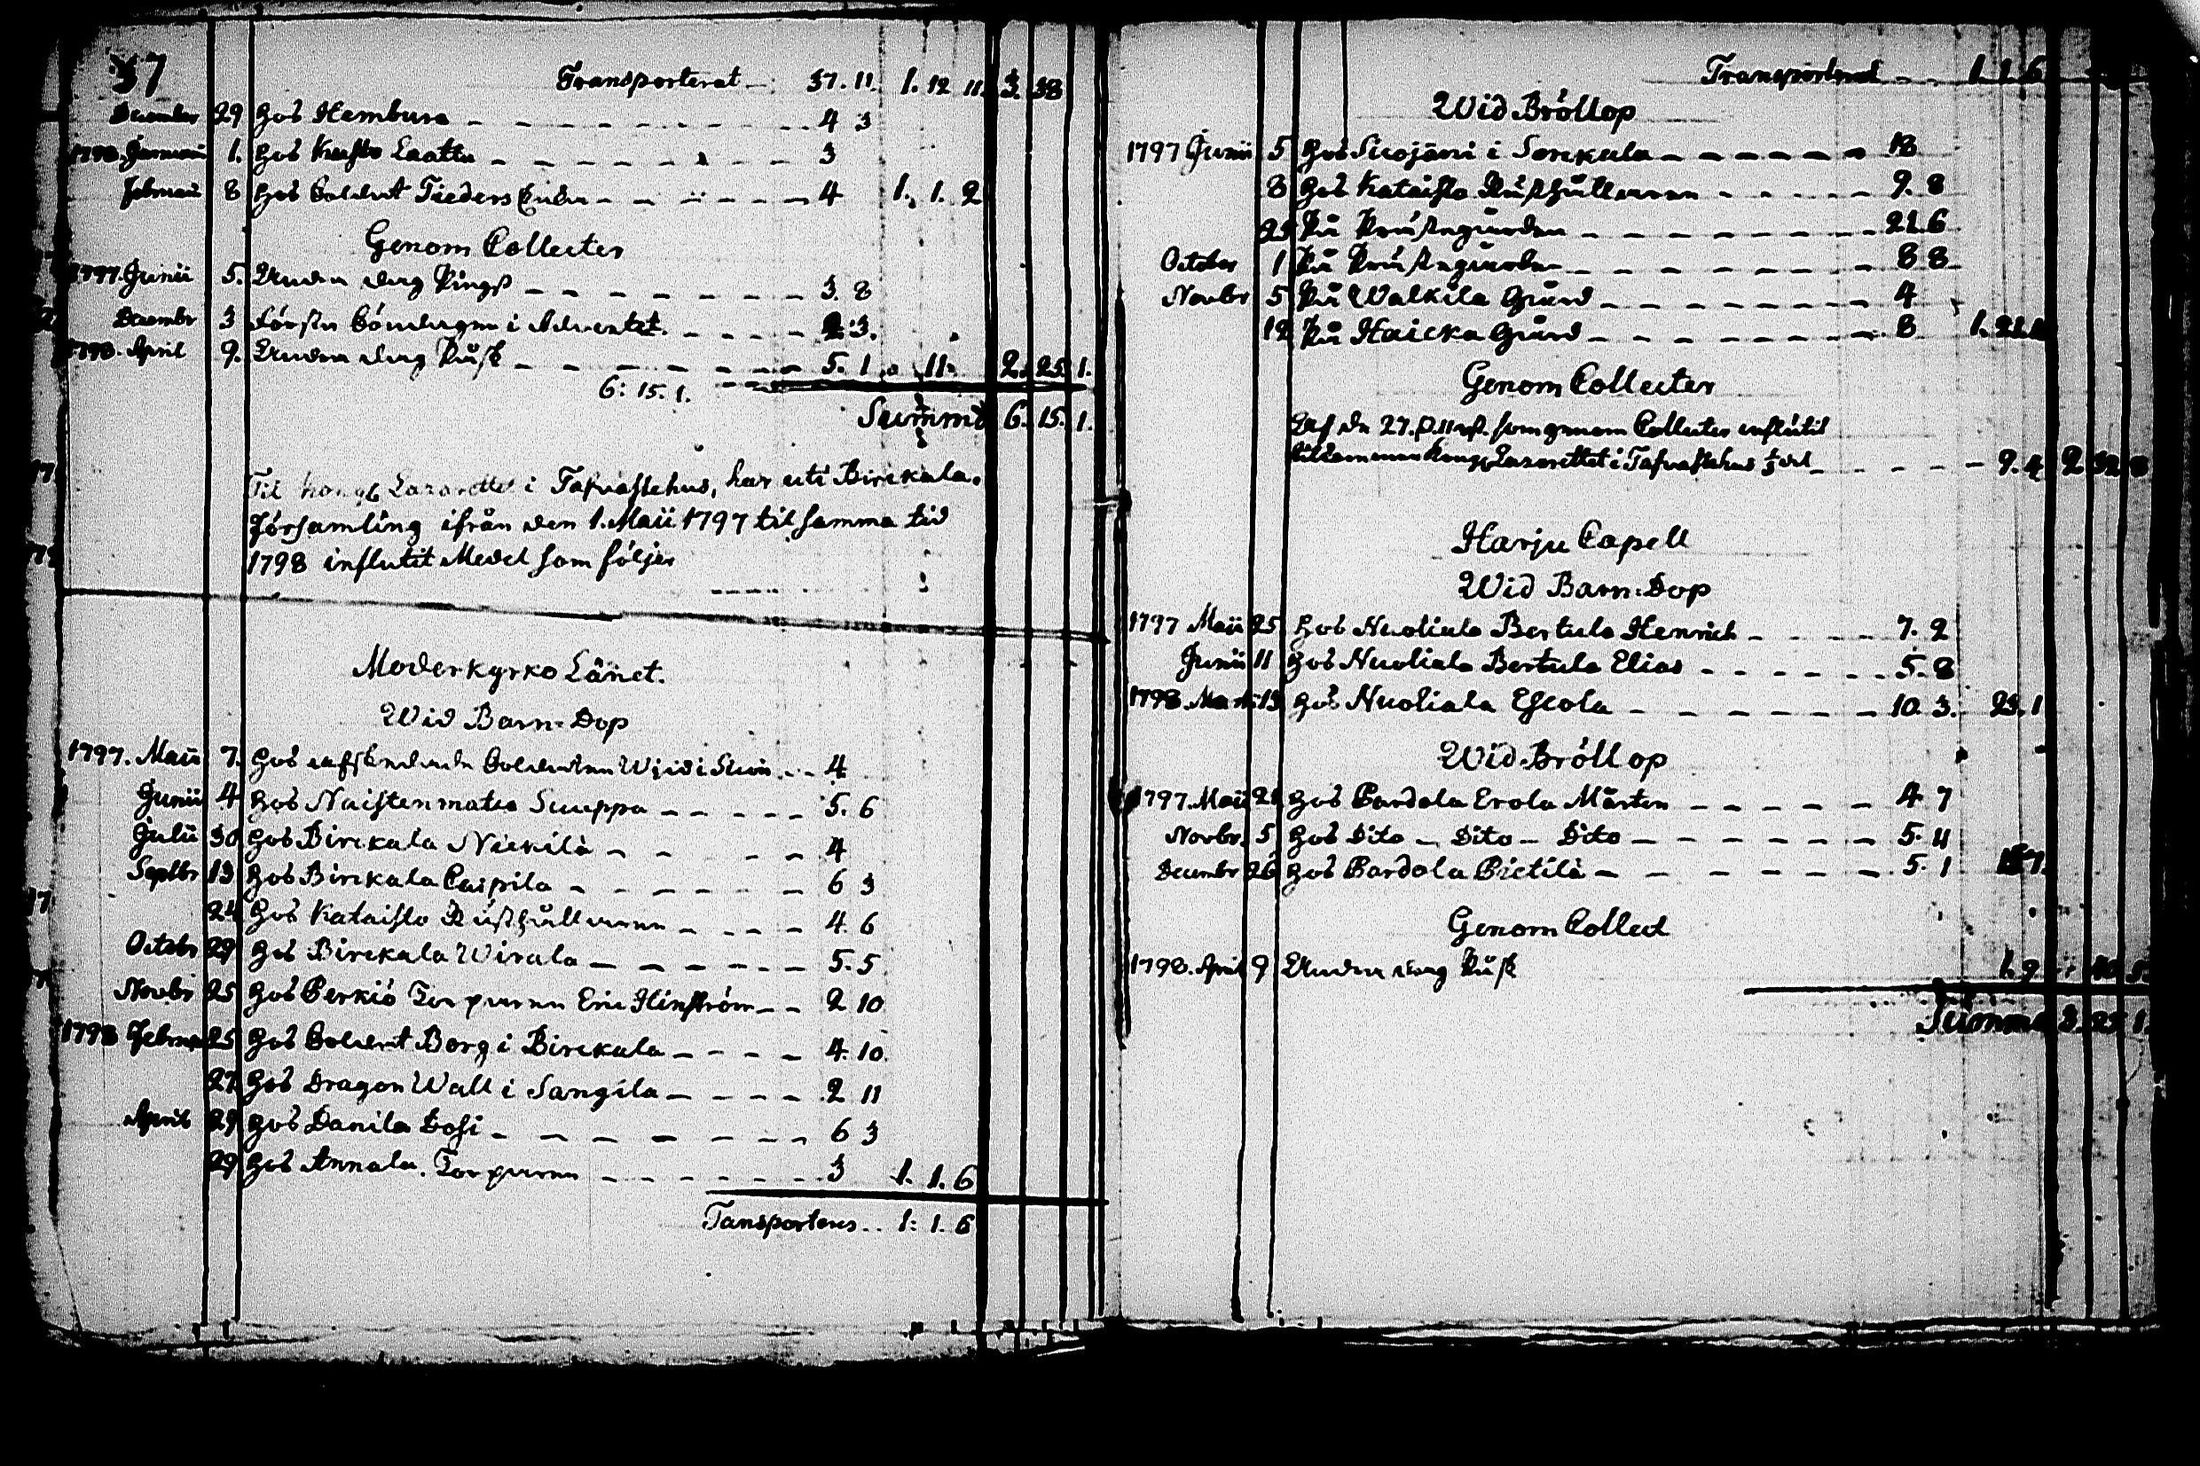 37
Transporterat 37. 11. 1. 12 11. 3. 38
December 29 Hos Hembura 4 3
1798. Januarii 1. Hos Kusto Laattu 3
Februarii 8 Hos Soldat Tieders 4 1. 1. 2
Genom Collecter
1797. Junii 5. Andra dag Pingst 3. 8
Decembr 3 Första Söndagen i Adventet. 2: 3.
1798. April 9. Andra dag Påsk 5. 1 11. 2. 25. 1.
6: 15. 1.
Summa 6. 15. 1.
Til kongl. Lazarettet i Tafvastehus, har uti Birckala
Församling ifrån den 1. Maii 1797 til samma tid
1798 influtit Medel som följer
Moderkyrko Länet.
Wid Barn-Dop
1797. Maii 7. Hos afskedade Soldaten 4
Junii 4 Hos Naistenmatca Suuppa 5. 6
Julii 30 Hos Birckala Nickilä 4
Septbr 13 Hos Birckala Caiprila 6 3
24 Hos Kataisto Rusthållaren 4. 6
Octobr 29 Hos Birckala Wirala 5. 5
Novbr 25 Hos Perkiö Torparen Eric Hinström 2 10
1798 Februarii 25 Hos Soldat Borg i Birckala 4. 10.
27 Hos Dragon Wall i Sangila 2 11
April 29 Hos Danila Sosi 6 3
29 Hos Annala Torparen 3 1. 1. 6
Tansporteres 1: 1. 6
Transporterat 1. 1. 6
Wid Bröllop
1797 Junii 5 Hos Suojärvi i Sorckala 18
8 Hos Kataisto Rusthållaren 9. 8
25 På Prästegården 21. 6
October 1 På Prästegården 8 8
Novbr 5 På Walkila Gård 4
12 På Haicka Gård 8 1.
Genom Collecter
Af de som genom Collecter influtit
tilkommer kongl. Lazarettet i Tafvastehus 1/3 del 9. 4 2 32 8
Harju Capell
Wid Barn-Dop
1797 Maii 25 Hos Nuoliala Bertula Henrich 7. 2
Junii 11 Hos Nuoliala Bertula Elias 5. 8
1798 Martii 13 Hos Nuoliala Escola 10. 3. 23. 1
Wid Bröllop
1797. Maii 21 Hos Pardola Erola Mårten 4 7
Novbr. 5 Hos Dito Dito Dito 5. 11
Decembr 26 Hos Pardola Pietilä 5. 1 15 7.
Genom Collect
1798. April 9 Andra dag Påsk 1. 9
Summa 3. 25 1.